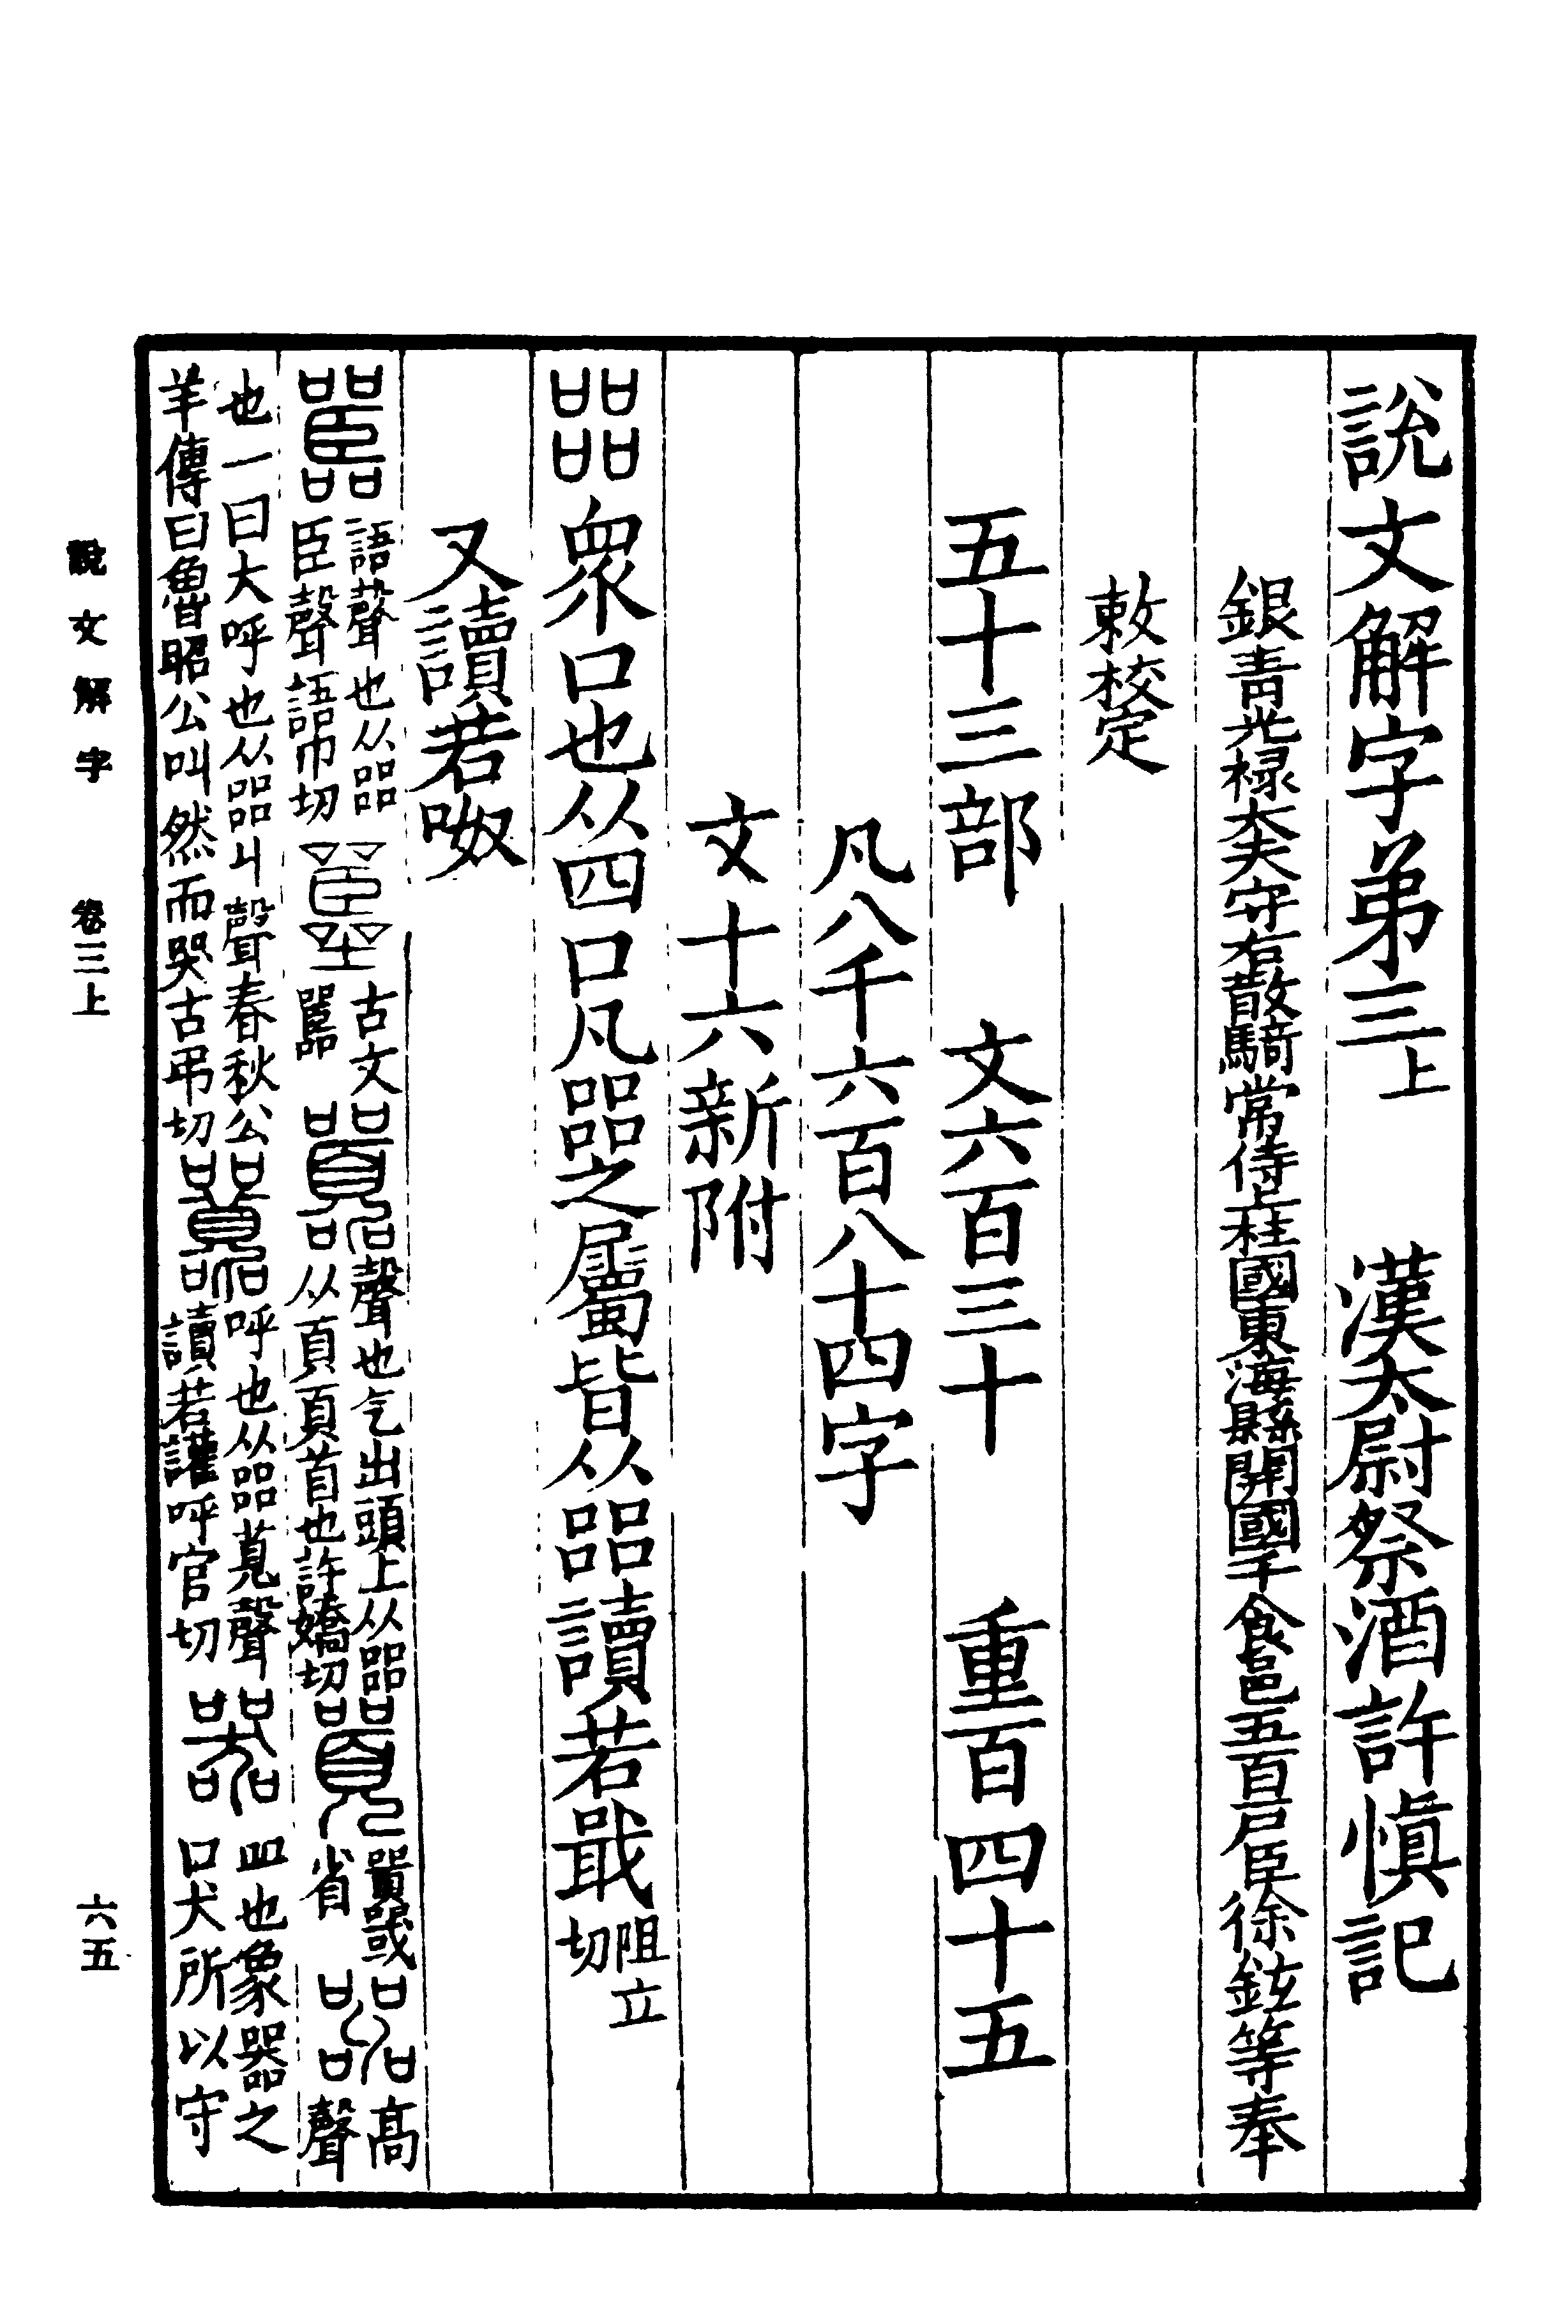 說文解字弟三上 漢太尉祭酒許慎記
銀青光祿大夫守右散騎常侍上柱國東海縣開國子食邑五百戶臣徐鉉等奉
敕校定
五十三部 文六百三十 重百四十五
凡八千六百八十四字
文十六新附
㗊 眾口也从四口凡㗊之屬皆从㗊讀若戢阻立切
又讀若呶
嚚 語聲也从㗊臣聲語巾切 古文嚚 囂 聲也气出頭上从㗊从頁頁首也許嬌切 囂或省 嘂 高聲
也一曰大呼也从㗊丩聲春秋公羊傳曰魯昭公叫然而哭古弔切 呼也从㗊莧聲讀若讙呼官切 器 皿也象器之口犬所以守
說文解字 卷三上 六五